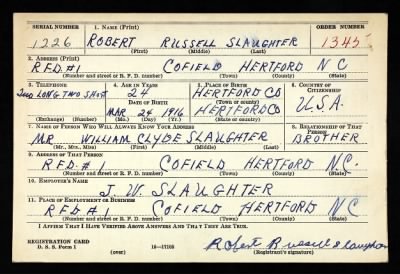 SERIAL NUMBER 1. NAME (Print) ORDER NUMBER
1226 ROBERT RUSSELL SLAUGHTER 1345
(First) (Middle) (Last)
2. ADDRESS (Print)
R.F.D. #1 COFIELD HERTFORD N C
(Number and street or R. F. D. number) (Town) (County) (State)
3. TELEPHONE 4. AGE IN YEARS 5. PLACE OF BIRTH 6. COUNTRY OF CITIZENSHIP
LONG TWO SHORT 24 HERTFORD CO
DATE OF BIRTH (Town or county) U.S.A.
MAR 24 1916 HERTFORD CO
(Exchange) (Number) (Mo.) (Day) (Yr.) (State or country)
7. NAME OF PERSON WHO WILL ALWAYS KNOW YOUR ADDRESS 8. RELATIONSHIP OF THAT PERSON
MR WILLIAM CLYDE SLAUGHTER BROTHER
(Mr., Mrs., Miss) (First) (Middle) (Last)
9. ADDRESS OF THAT PERSON
R.F.D. #1 COFIELD HERTFORD N.C.
(Number and street or R. F. D. number) (Town) (County) (State)
10. EMPLOYER'S NAME
J. W. SLAUGHTER
11. PLACE OF EMPLOYMENT OR BUSINESS
R.F.D. #1 COFIELD HERTFORD N.C.
(Number and street or R. F. D. number) (Town) (County) (State)
I AFFIRM THAT I HAVE VERIFIED ABOVE ANSWERS AND THAT THEY ARE TRUE.
REGISTRATION CARD
D. S. S. Form 1 (over) 16—17105
Robert Russell Slaughter
(Registrant's signature)